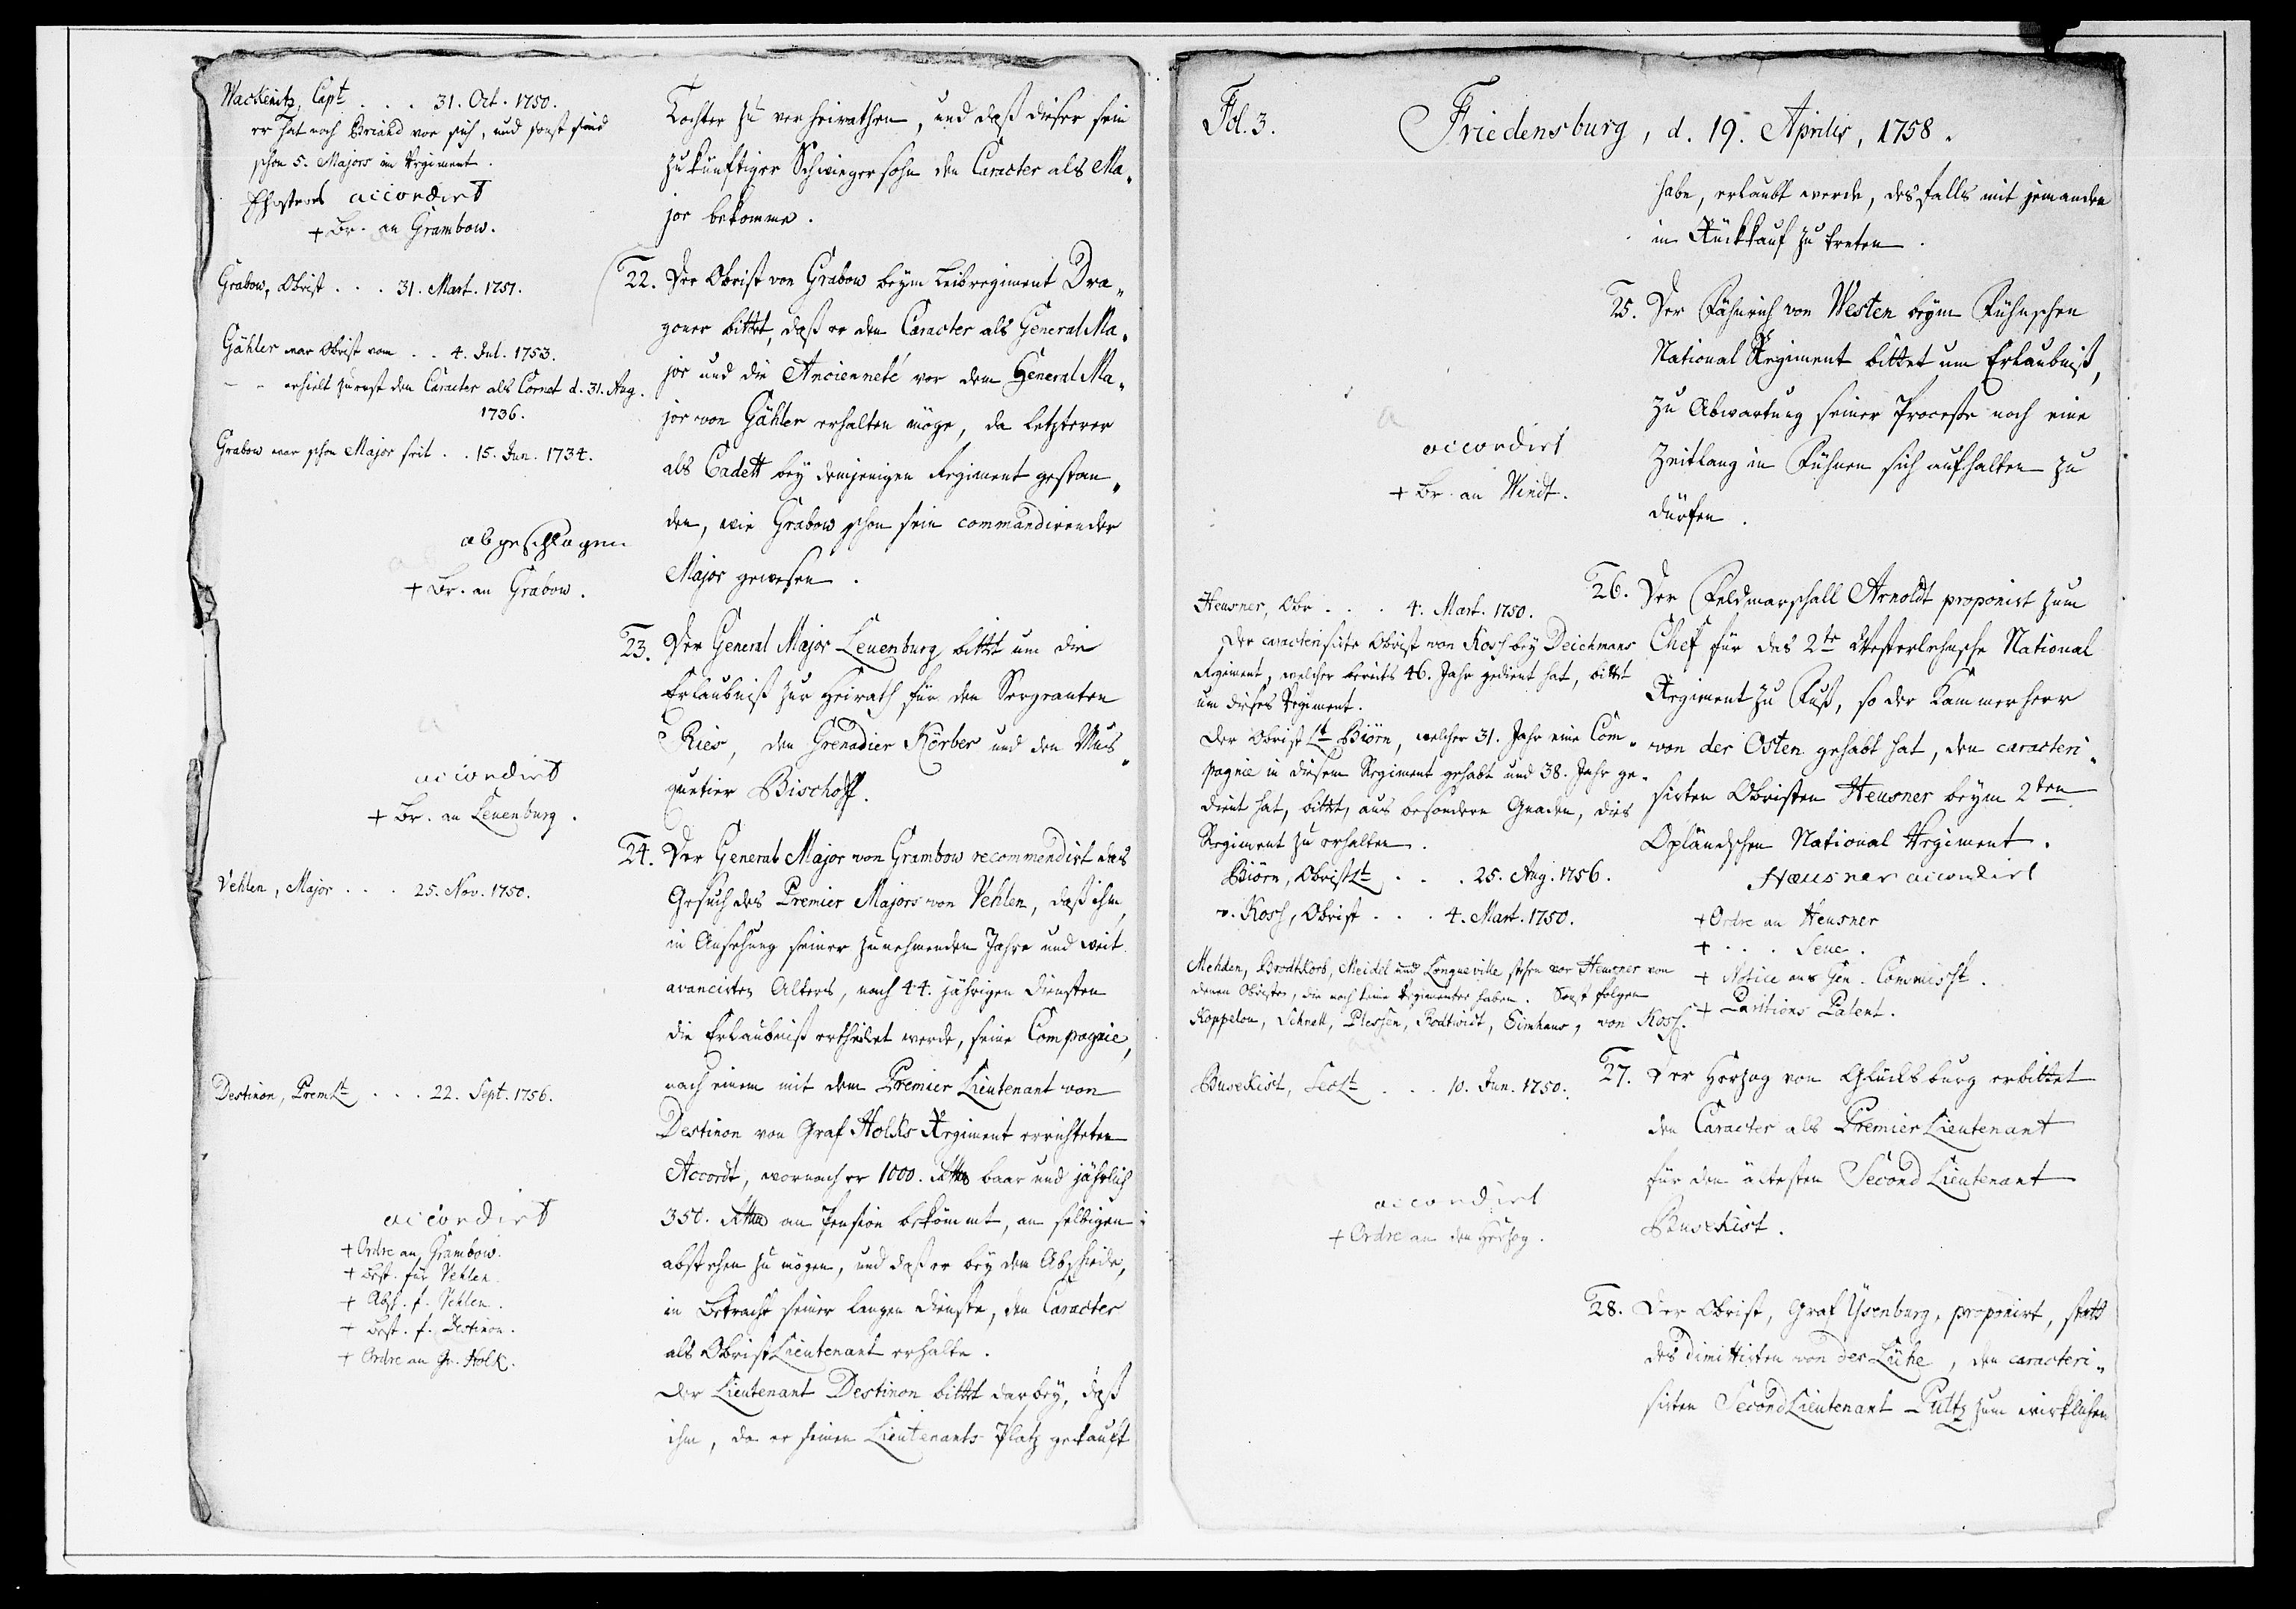 Wackenitz, Capt . . . 31. Oct. 1750.
er hat noch Briand vor sich, und sonst sind
schon 5. Majors im Regiment.
accordirt
+ Br. an Grambow.
Grabow, Obrist . . . 31. Mart. 1751.
Gähler war Obrist vom . . 4. Jul. 1753.
– – erhielt zuerst den Caracter als Cornet d. 31. Aug.
1736.
Grabow war schon Major seit . . 15. Jun. 1734.
abgeschlagen
+ Br. an Grabow.
accordirt
+ Br. an Leuenburg.
Vehlen, Major . . . 25. Nov. 1750.
Destinon, PremLt . . . 22. Sept. 1756.
accordirt
+ Ordre an Grambow.
+ Best. für Vehlen
+ Absch. f. Vehlen.
+ Best. f. Destinon.
+ Ordre an Gr. Holk.
Tochter zu verheirathen, und daß dieser sein
zukünftiger Schwiegersohn den Caracter als Ma„
jor bekomme.
22. Der Obrist von Grabow beym Leibregiment Dra„
goner bittet, daß er den Caracter als General Ma„
jor und die Ancienneté vor dem General Ma„
jor von Gähler erhalten möge, da letzterer
als Cadett bey demjenigen Regiment gestan„
den, wie Grabow schon sein commandirender
Major gewesen.
23. Der General Major Leuenburg bittet um die
Erlaubniß zur Heirath für den Sergeanten
Ries, den Grenadier Körber und den Mus„
quetier Bischoff.
24. Der General Major von Grambow recommendirt das
Gesuch des Premier Majors von Vehlen, daß ihm,
in Ansehung seiner zunehmenden Jahre und weit
avancirten Alters, nach 44. jährigen Diensten
die Erlaubniß ertheilet werde, seine Compagnie,
nach einem mit dem Premier Lieutenant von
Destinon von Graf Holks Regiment errichteten
Accordt, wornach er 1000. Rthlr baar und jährlich
350. Rthlr an Pension bekömmt, an selbigen
abstehen zu mögen, und daß er bey dem Abschiede,
in Betracht seiner langen Dienste, den Caracter
als ObristLieutenant erhalte.
Der Lieutenant Destinon bittet darbey, daß
ihm, da er seinen Lieutenants Platz gekauft
Fol. 3.
Friedensburg, d. 19. Aprilis, 1758.
habe, erlaubt werde, desfalls mit jemanden
in Rückkauf zu treten.
25. Der Fähnrich von Westen beym Fühnschen
National Regiment bittet um Erlaubniß,
zu Abwartung seiner Processe noch eine
Zeitlang in Fühnen sich aufhalten zu
dürfen.
accordirt
+ Br. an Windt.
26. Der Feldmarschall Arnoldt proponirt zum
Chef für das 2te Westerlehnsche National
Regiment zu Fuß, so der Kammerherr
von der Osten gehabt hat, den caracteri„
sirten Obristen Heusner beym 2ten
Opländschen National Regiment.
Haeusner accordirt
+ Ordre an Heusner
+ . . . Seue.
+ Notice ans Gen. Commisst.
+ Paritions Patent.
Heusner, Obr . . . 4. Mart. 1750.
Der caracterisirte Obrist von Koss bey Deichmans
Regiment, welcher bereits 46. Jahr gedient hat, bittet
um dieses Regiment.
Der Obrist Lt Biörn, welcher 31. Jahr eine Com„
pagnie in diesem Regiment gehabt und 38. Jahr ge„
dient hat, bittet, aus besondern Gnaden, dies
Regiment zu erhalten.
Biörn, ObristLt . . . 25. Aug. 1756.
v. Koss, Obrist . . . 4. Mart. 1750.
Mehden, Brodtkorb, Meidel und Longueville stehen vor Heusner von
denen Obristen, die noch keine Regimenter haben. Sonst folgen
Koppelou, Schnell, Plessen, Rodtwidt, Simhaus, von Koss.
Busekist, SecLt . . . 10. Jun. 1750.
27. Der Herzog von Glücksburg erbittet
den Caracter als Premier Lieutenant
für den ältesten Second Lieutenant
Busekist.
accordirt
+ Ordre an den Herzog.
28. Der Obrist, Graf Ysenburg, proponirt, statt
des dimittirten von der Lühe, den caracteri„
sirten SecondLieutenant Pultz zum wirklichen